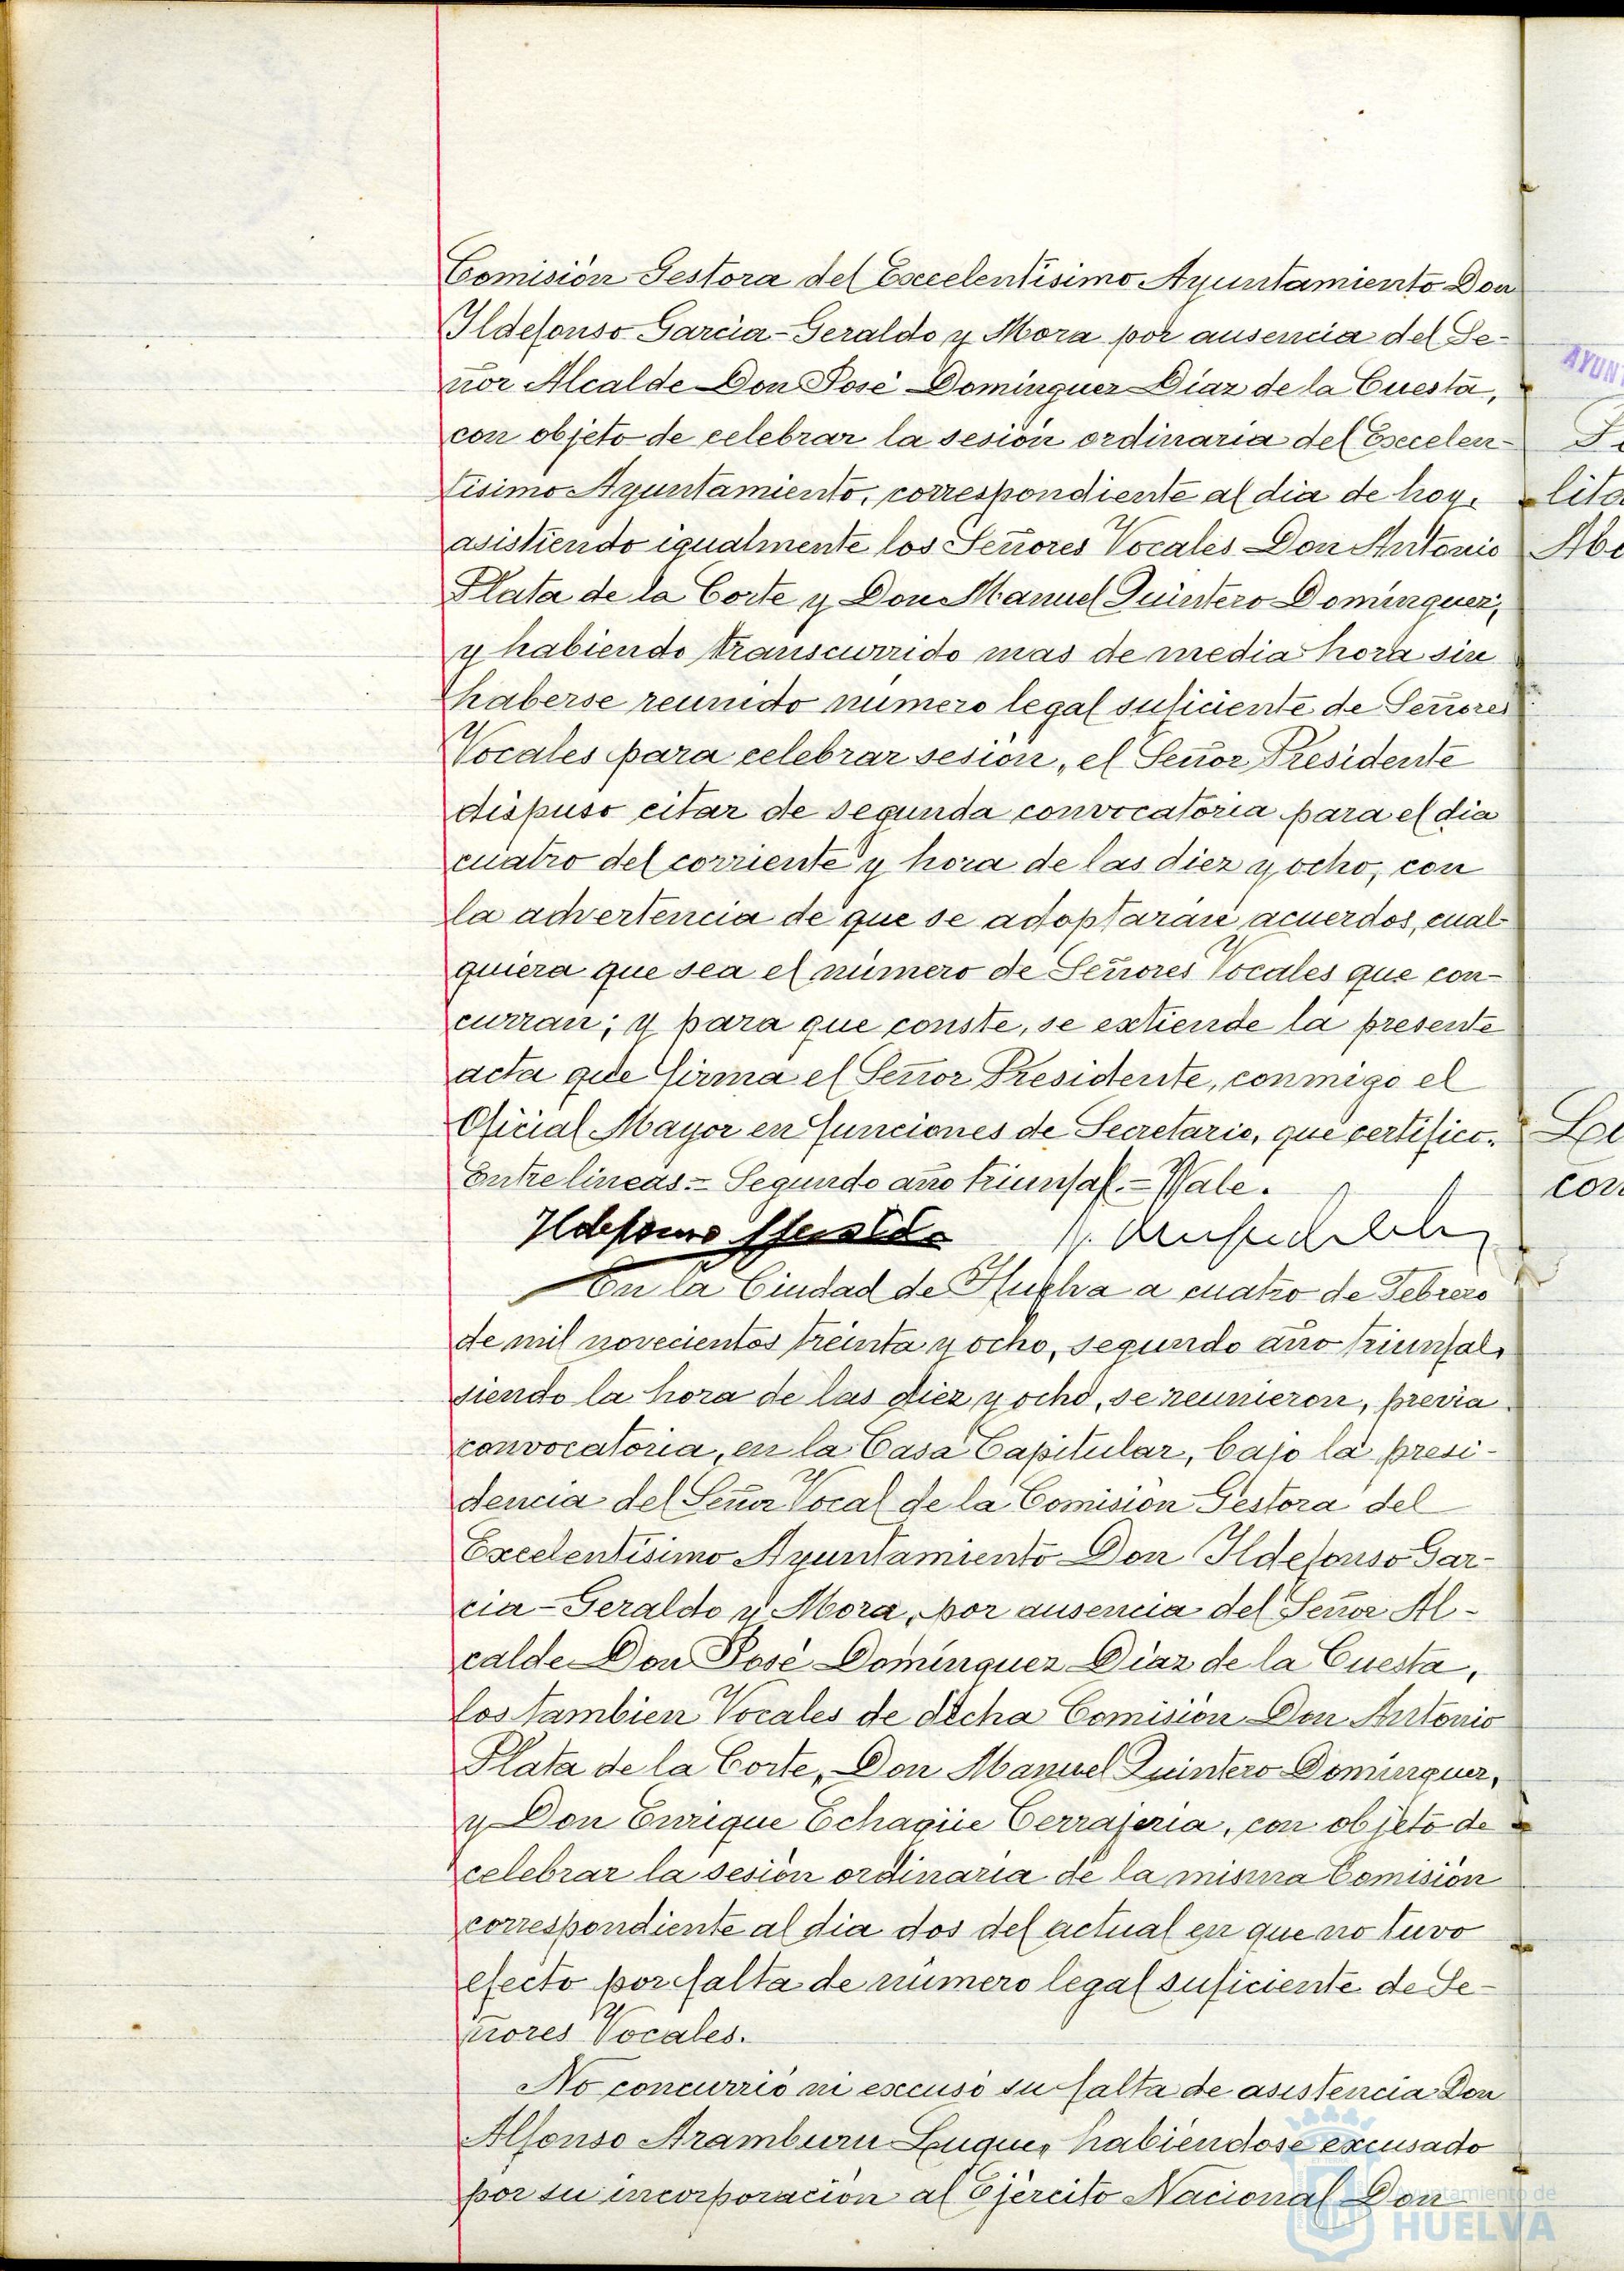 Comisión Gestora del Excelentísimo Ayuntamiento Don
Ildefonso García-Geraldo y Mora por ausencia del Se-
ñor Alcalde Don José Domínguez Díaz de la Cuesta,
con objeto de celebrar la sesión ordinaria del Excelen-
tísimo Ayuntamiento, correspondiente al dia de hoy,
asistiendo igualmente los Señores Vocales Don Antonio
Plata de la Corte y Don Manuel Quintero Domínguez,
y habiendo transcurrido mas de media hora sin
haberse reunido número legal suficiente de Señores
Vocales para celebrar sesión, el Señor Presidente
dispuso citar de segunda convocatoria para el dia
cuatro del corriente y hora de las diez y ocho, con
la advertencia de que se adoptarán acuerdos, cual-
quiera que sea el número de Señores Vocales que con-
curran; y para que conste, se extiende la presente
acta que firma el Señor Presidente, conmigo el
Oficial Mayor en funciones de Secretario, que certifico.
Entre lineas = Segundo año triunfal. = Vale.
Ildefonso
En la Ciudad de Huelva a cuatro de Febrero
de mil novecientos treinta y ocho, segundo año triunfal,
siendo la hora de las diez y ocho, se reunieron, previa
convocatoria, en la Casa Capitular, bajo la presi-
dencia del Señor Vocal de la Comisión Gestora del
Excelentísimo Ayuntamiento Don Ildefonso Gar-
cía-Geraldo y Mora, por ausencia del Señor Al-
calde Don José Domínguez Díaz de la Cuesta,
los tambien Vocales de dicha Comisión Don Antonio
Plata de la Corte, Don Manuel Quintero Domínguez,
y Don Enrique Echagüe Cerrajería, con objeto de
celebrar la sesión ordinaria de la misma Comisión
correspondiente al dia dos del actual en que no tuvo
efecto por falta de número legal suficiente de Se-
ñores Vocales.
No concurrió ni excusó su falta de asistencia Don
Alfonso Aramburu Luque, habiéndose excusado
por su incorporación al Ejército Nacional Don
Ayuntamiento de
HUELVA